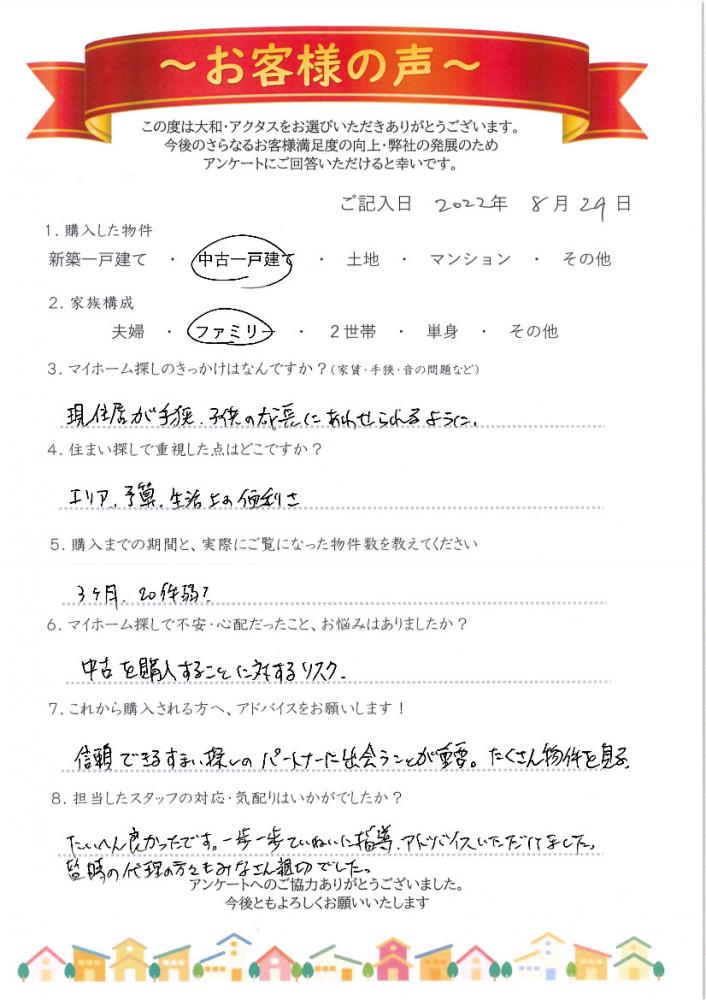 ～お客様の声～
この度は大和・アクタスをお選びいただきありがとうございます。
今後のさらなるお客様満足度の向上・弊社の発展のため
アンケートにご回答いただけると幸いです。
ご記入日 2022年 8月29日
1. 購入した物件
新築一戸建て ・ 中古一戸建て ・ 土地 ・ マンション ・ その他
2. 家族構成
夫婦 ・ ファミリー ・ 2世帯 ・ 単身 ・ その他
3. マイホーム探しのきっかけはなんですか？(家賃・手狭・音の問題など)
現住居が手狭、子供の成長にあわせられるように。
4. 住まい探しで重視した点はどこですか？
エリア、予算、生活上の便利さ
5. 購入までの期間と、実際にご覧になった物件数を教えてください
3ヶ月、20件弱？
6. マイホーム探しで不安・心配だったこと、お悩みはありましたか？
中古を購入することに対するリスク。
7. これから購入される方へ、アドバイスをお願いします！
信頼できるすまい探しのパートナーに出会うことが重要。たくさん物件を見る。
8. 担当したスタッフの対応・気配りはいかがでしたか？
たいへん良かったです。一歩一歩ていねいに指導、アドバイスいただけました。
時の代理の方々もみなさん親切でした。
アンケートへのご協力ありがとうございました。
今後ともよろしくお願いいたします